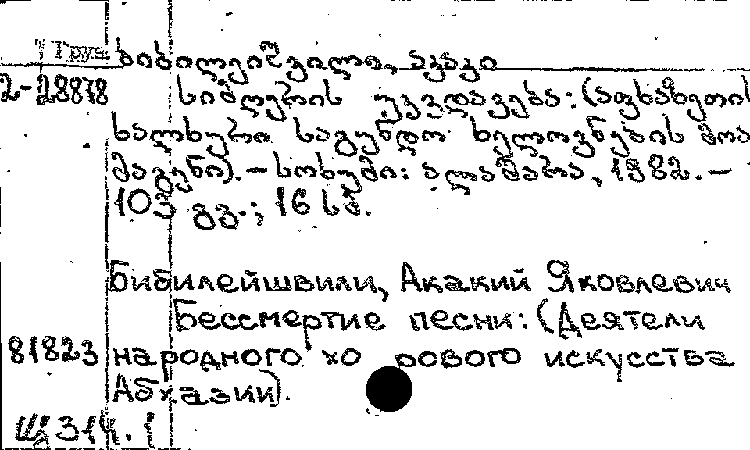 Груз.
ბიბილეიშვილი, აკაკი
2-28878
სიმღერის უკვდავება: (აფხაზეთის
ხალხური საგუნდო ხელოვნების მოა
მაგენი). – სოხუმი: ალაშარა, 1982. –
103 გვ.; 16 სმ.
Бибилейшвили, Акакий Яковлевич
Бессмертие песни: (Деятели
81823 народного хо рового искусства
Абхазии).
Щ 314.